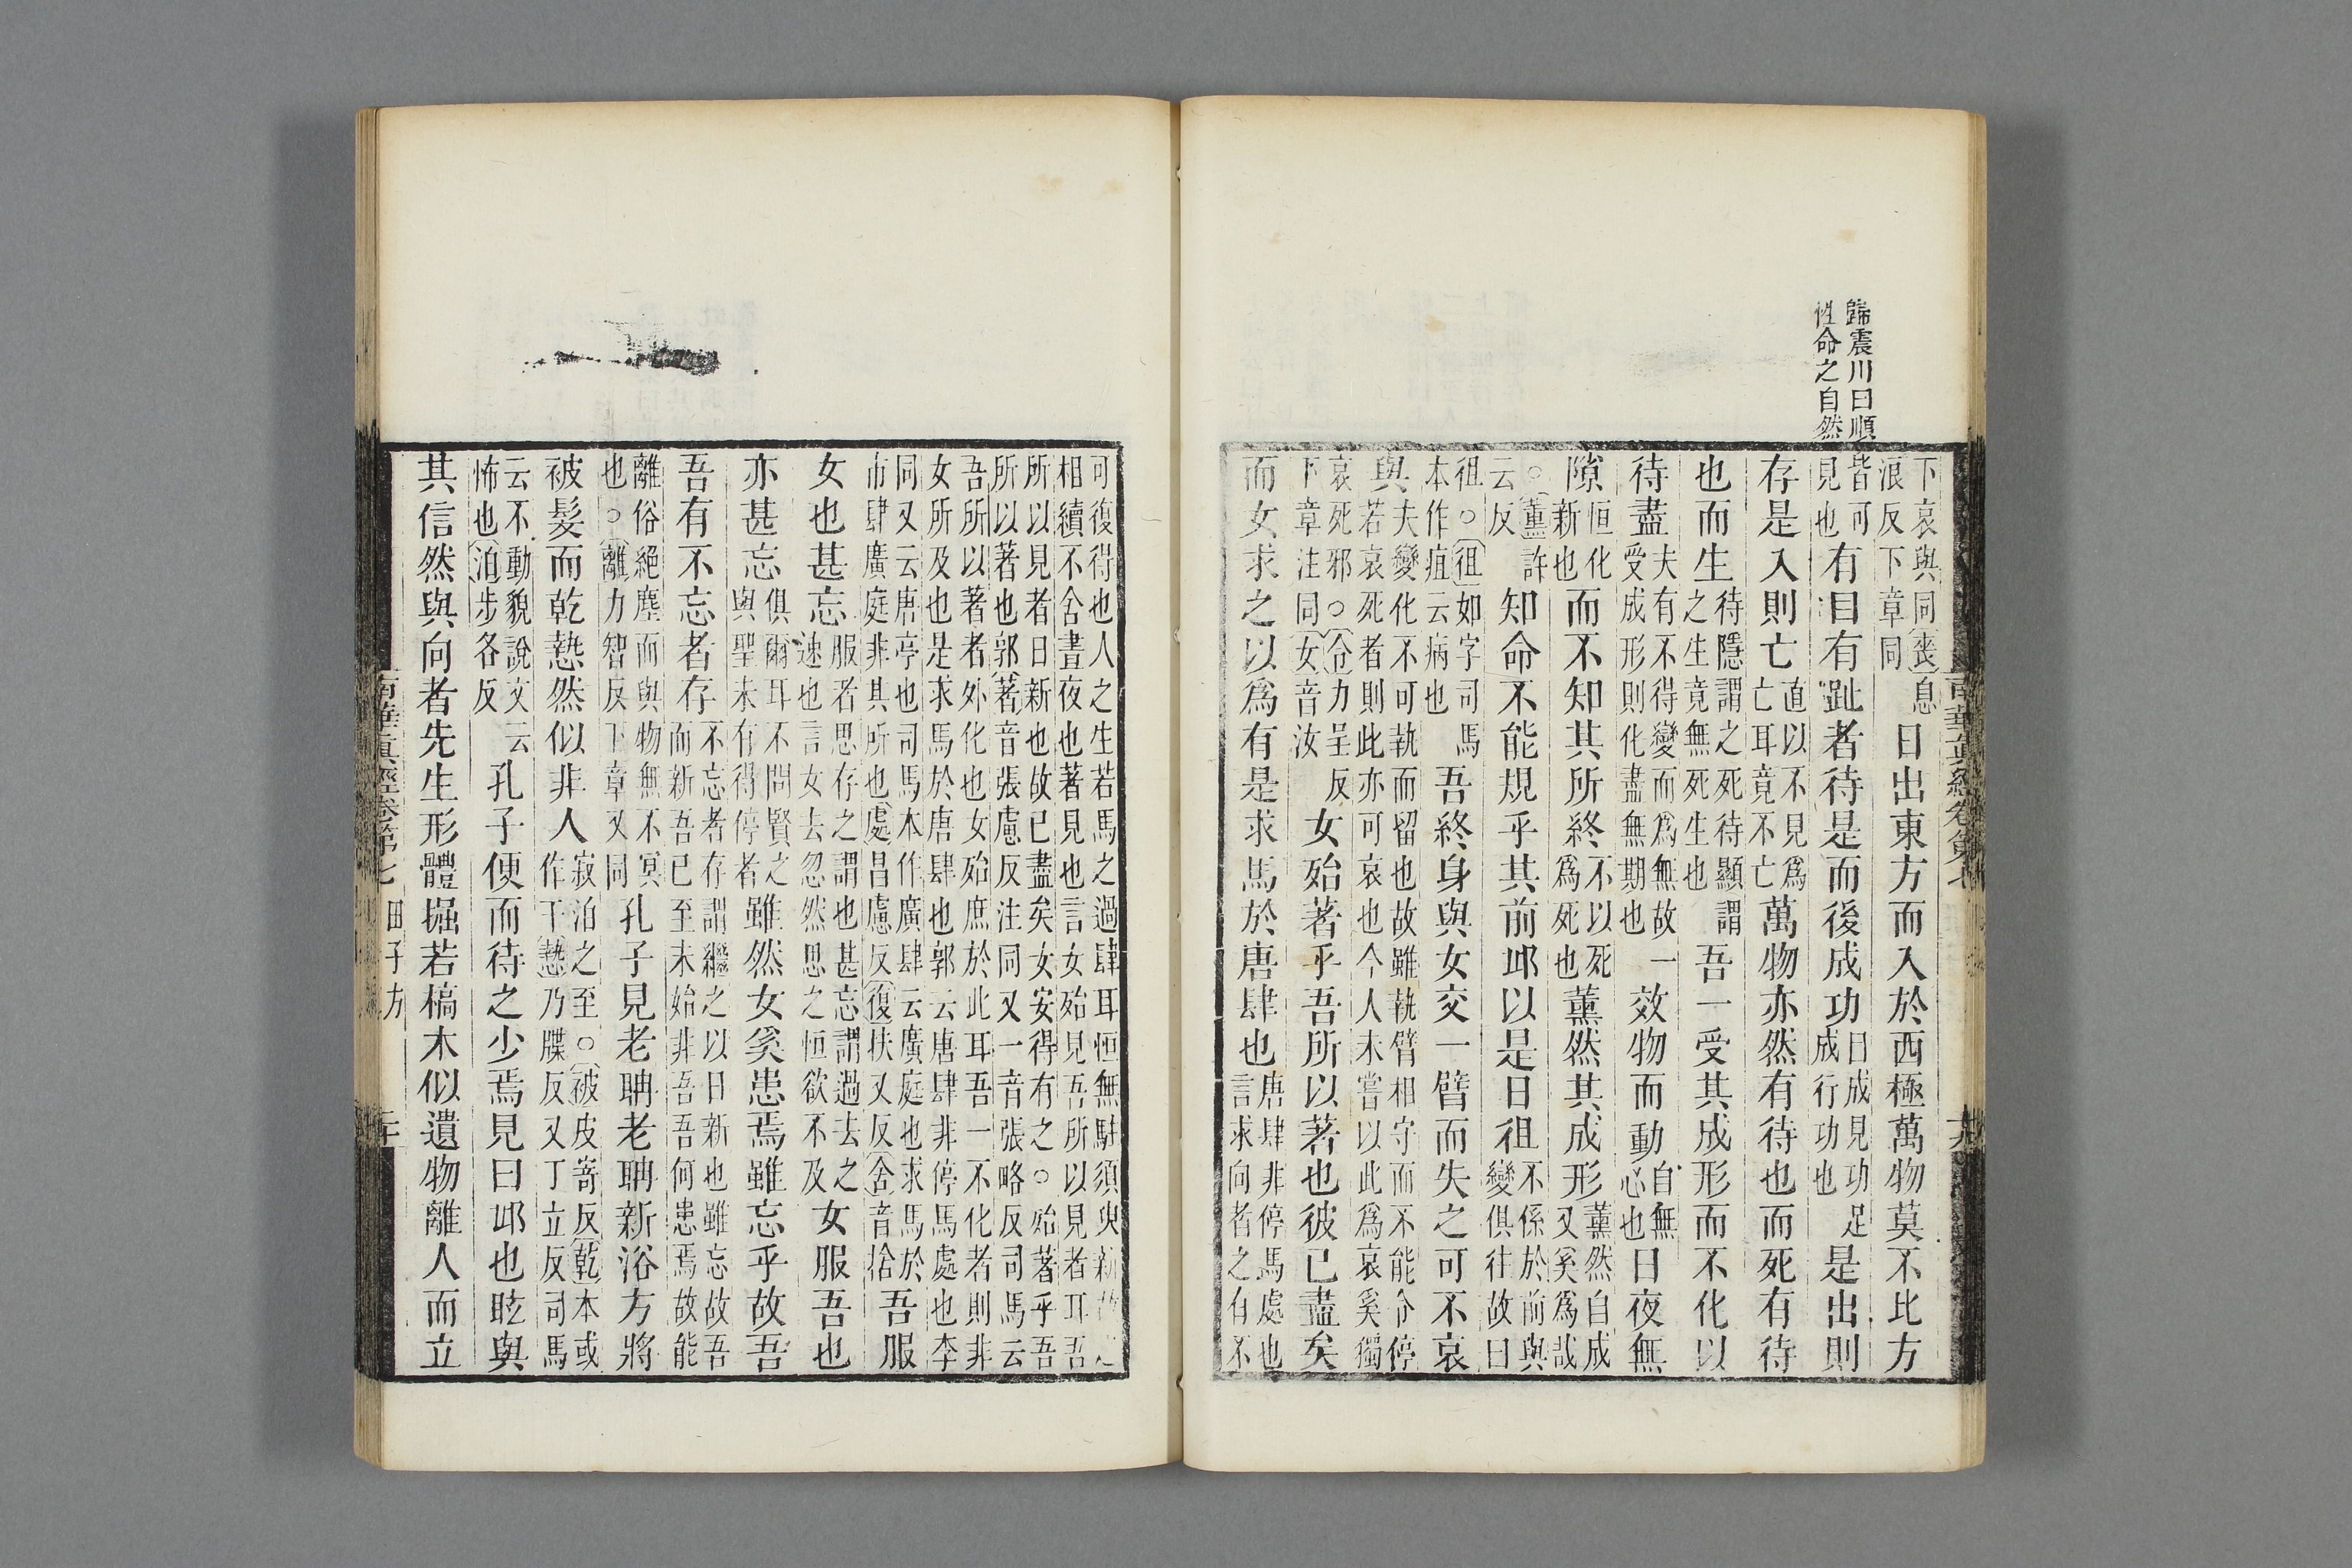 歸震川曰順
性命之自然
下哀與同喪息
浪反下章同
日出東方而入於西極萬物莫不比方
皆可
見也
有目有趾者待是而後成功
日成見功足
成行功也
是出則
存是入則亡
直以不見爲
亡耳竟不亡
萬物亦然有待也而死有待
也而生
待隱謂之死待顯謂
之生竟無死生也
吾一受其成形而不化以
待盡
夫有不得變而爲無故一
受成形則化盡無期也
效物而動
自無
心也
日夜無
隙
恒化
新也
而不知其所終
不以死
爲死也
薰然其成形
薰然自成
又奚爲哉
○薰許
云反
知命不能規乎其前邱以是日徂
不係於前與
變俱往故曰
徂○徂如字司馬
本作疽云病也
吾終身與女交一臂而失之可不哀
與
夫變化不可執而留也故雖執臂相守而不能令停
若哀死者則此亦可哀也今人未嘗以此爲哀奚獨
哀死邪○令力呈反
下章注同女音汝
女殆著乎吾所以著也彼已盡矣
而女求之以爲有是求馬於唐肆也
唐肆非停馬處也
言求向者之有不
可復得也人之生若馬之過肆耳恒無駐須臾新故之
相續不舍晝夜也著見也言女殆見吾所以見者耳吾
所以見者日新也故已盡矣女安得有之○殆著乎吾
所以著也郭著音張慮反注同又一音張略反司馬云
吾所以著者外化也女殆庶於此耳吾一不化者則非
女所及也是求馬於唐肆也郭云唐肆非停馬處也李
同又云唐亭也司馬本作廣肆云廣庭也求馬於
市肆廣庭非其所也處昌慮反復扶又反舍音捨
吾服
女也甚忘
服者思存之謂也甚忘謂過去之
速也言女去忽然思之恒欲不及
女服吾也
亦甚忘
俱爾耳不問賢之
與聖未有得停者
雖然女奚患焉雖忘乎故吾
吾有不忘者存
不忘者存謂繼之以日新也雖忘故吾
而新吾已至未始非吾吾何患焉故能
離俗絕塵而與物無不冥
也○離力智反下章又同
孔子見老聃老聃新浴方將
被髮而乾慹然似非人
寂泊之至○被皮寄反乾本或
作干慹乃牒反又丁立反司馬
云不動貌說文云
怖也泊步各反
孔子便而待之少焉見曰邱也眩與
其信然與向者先生形體掘若槁木似遺物離人而立
南華真經卷第七
田子方